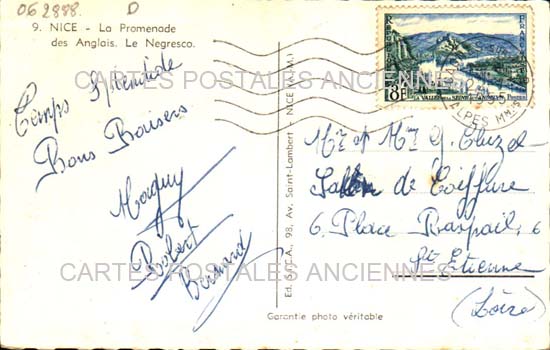 062888. D
9. NICE - La Promenade
des Anglais. Le Negresco.
Temps Splendide
Bons Baisers
Maguy
Robert
Bernard
Ed. S.C.A., 98, Av. Saint-Lambert - NICE (A.-M.)
Garantie photo véritable
8F
LA VALLÉE DE LA SEINE AUX ANDELYS
POSTES
ALPES MMES
Mr et Mme G. Cluzel
Salon de Coiffure
6, Place Raspail, 6
St Etienne
(Loire)
CARTES POSTALES ANCIENNES
CARTES POSTALES ANCIENNES